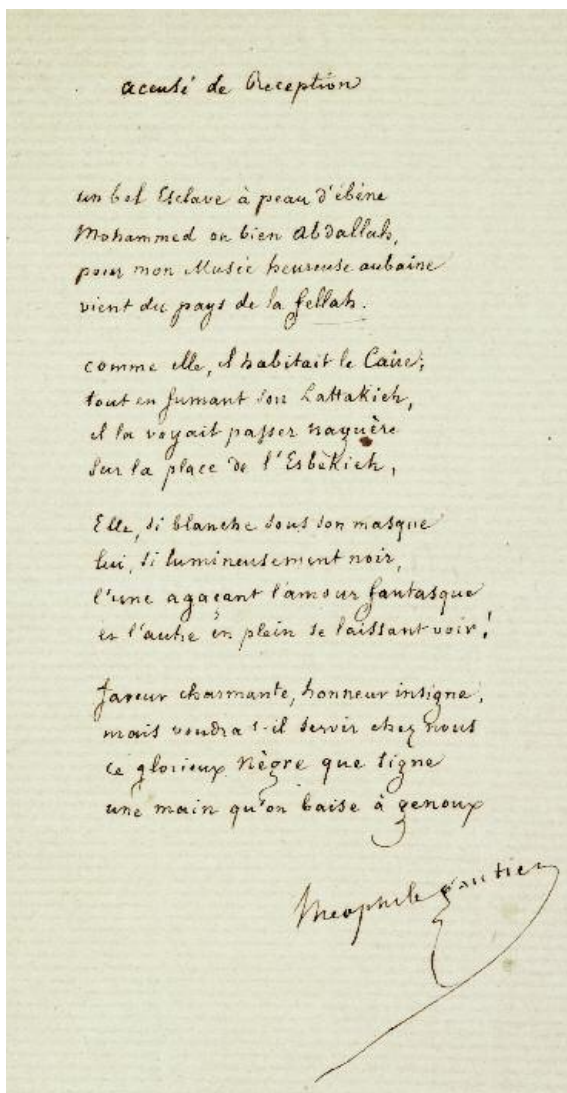 accusé de Reception
un bel Esclave à peau d'ébène
Mohammed ou bien Abdallah,
pour mon Musée heureuse aubaine
vient du pays de la fellah.
comme elle, il habitait le Caire;
tout en fumant son Lattakieh,
il la voyait passer naguère
sur la place de l'Esbèkieh,
Elle, si blanche sous son masque
lui, si lumineusement noir,
l'une agaçant l'amour fantasque
et l'autre en plein se laissant voir!
faveur charmante, honneur insigne,
mais voudra t-il servir chez nous
ce glorieux nègre que signe
une main qu'on baise à genoux
Theophile gautier